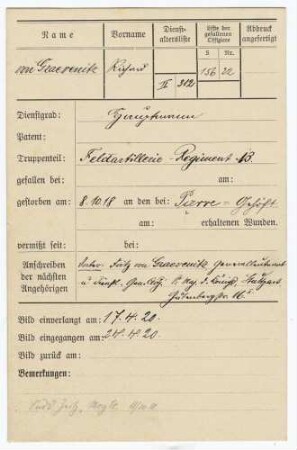 Name Vorname Dienst-altersliste Liste der gefallenen Offiziere Abdruck angefertigt
S. Nr.
von Graevenitz Richard II 312 156 22
Dienstgrad: Hauptmann
Patent:
Truppenteil: Feldartillerie-Regiment 13.
gefallen bei: am:
gestorben am: 8.10.18 an den bei: Pierre-Gehöft
am: erhaltenen Wunden.
vermißt seit: bei:
Anschreiben der nächsten Angehörigen
Vater: Fritz von Graevenitz, Generalleutnant
u. d. Königs, Stuttgart
Bild einverlangt am: 17.4.20.
Bild eingegangen am: 24.4.20.
Bild zurück am:
Bemerkungen: